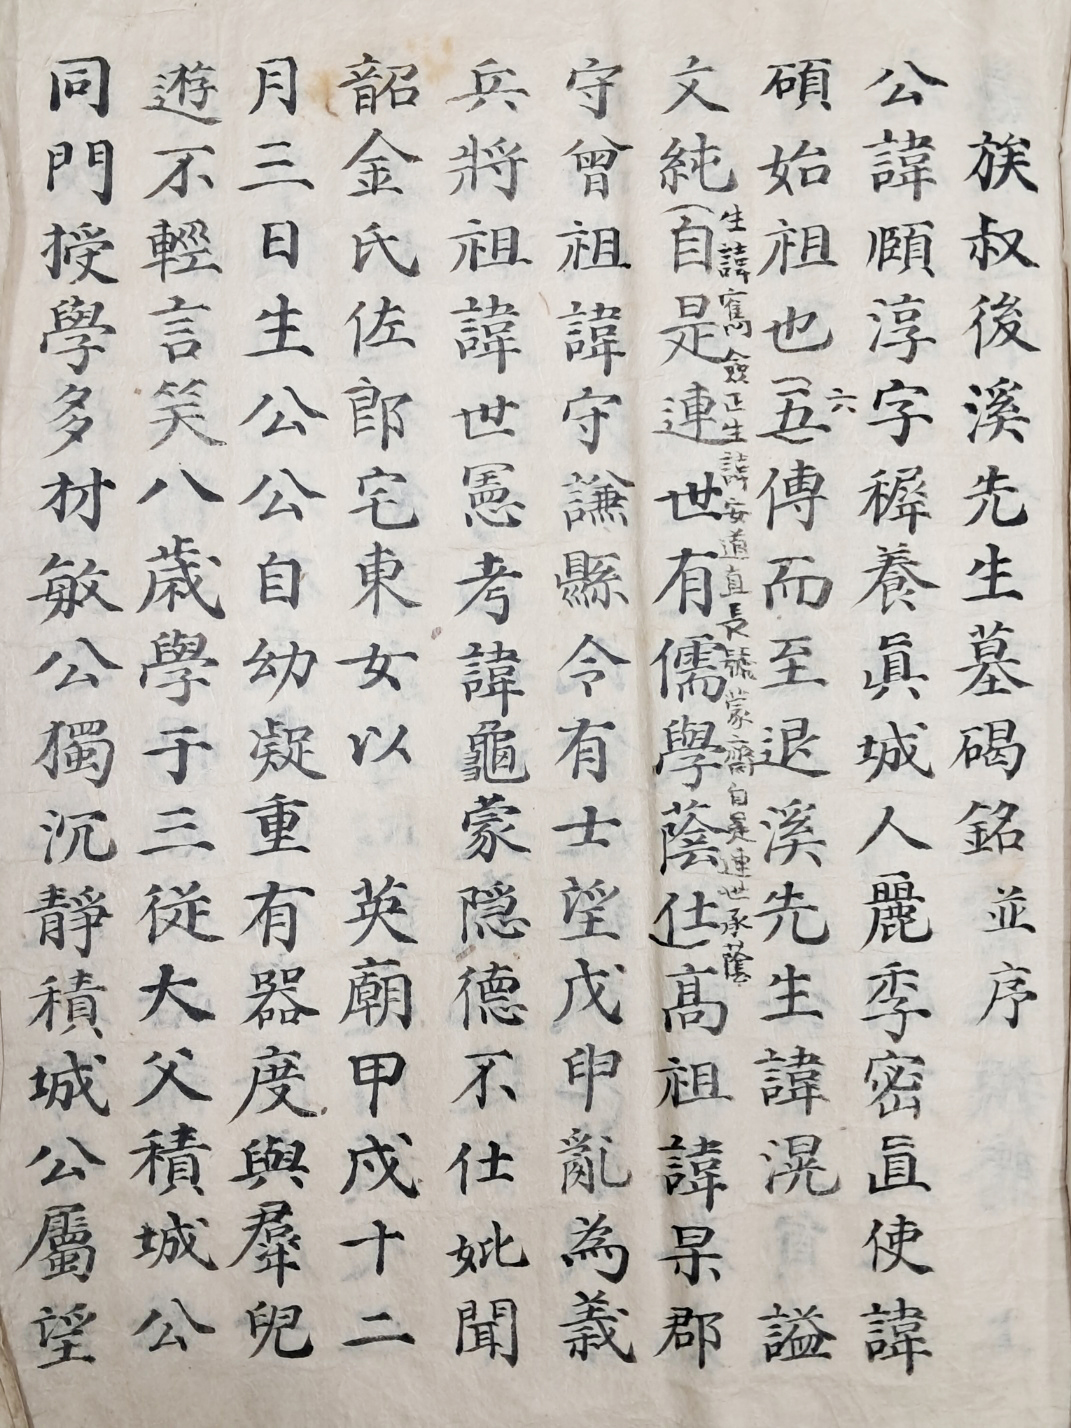 族叔後溪先生墓碣銘並序
公諱頤淳字穉養眞城人麗季密直使諱
碩始祖也五傳而至退溪先生諱滉 謚
六
文純自是連世有儒學蔭仕高祖諱杲郡
生諱寯僉正生諱安道直長號蒙齋自是連世承蔭
守曾祖諱守謙縣令有士望戊申亂為義
兵將祖諱世憲考諱龜蒙隱德不仕妣聞
韶金氏佐郎宅東女以 英廟甲戌十二
月三日生公公自幼凝重有器度與羣兒
遊不輕言笑八歲學于三從大父積城公
同門授學多材敏公獨沉靜積城公屬望